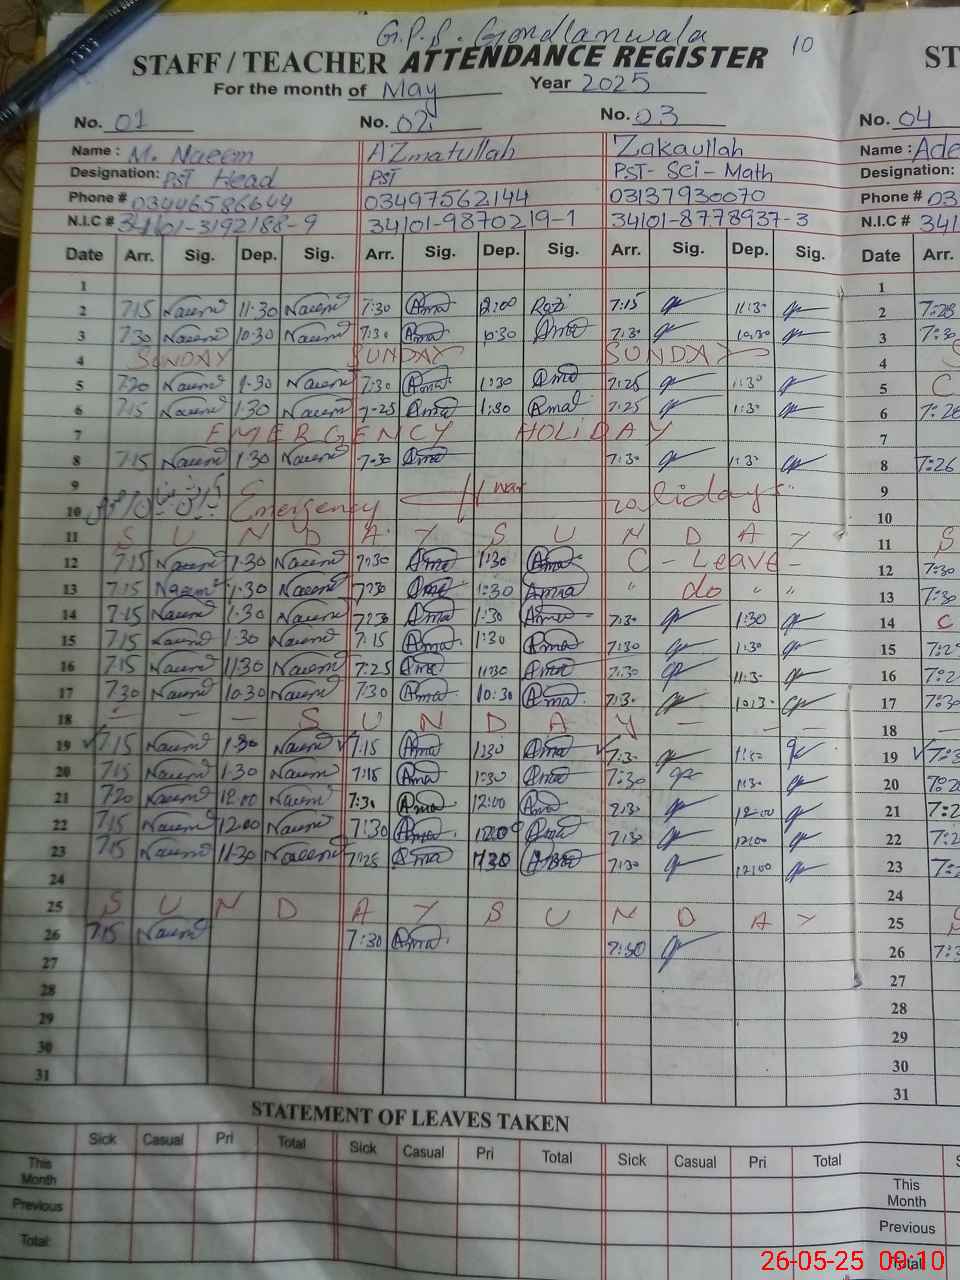 G.P.S. Gondlanwala
STAFF / TEACHER ATTENDANCE REGISTER 10 ST
For the month of May Year 2025
No. 01 No. 02 No. 03 No. 04
Name : M. Naeem AZmatullah Zakaullah Name : Ade
Designation: PST Head PST PST- Sci - Math Designation:
Phone # 03446586644 03497562144 03137930070 Phone # 03
N.I.C # 34101-3192188-9 34101-9870219-1 34101-8778937-3 N.I.C # 341
Date Arr. Sig. Dep. Sig. Arr. Sig. Dep. Sig. Arr. Sig. Dep. Sig. Date Arr.
1 1
2 7:15 Naeem 11:30 Naeem 7:30 Ama 12:00 7:15 11:30 2 7:28
3 7:30 Naeem 10:30 Naeem 7:30 Ama 10:30 Ama 7:30 10:30 3 7:30
4 SUNDAY SUNDAY SUNDAY 4 S
5 7:20 Naeem 1:30 Naeem 7:30 Ama 1:30 Ama 7:25 1:30 5 C
6 7:15 Naeem 1:30 Naeem 7-25 Ama 1:30 Ama 7:25 1:30 6 7:26
7 EMERGENCY HOLIDAY 7
8 7:15 Naeem 1:30 Naeem 7-30 Ama 7:30 1:30 8 7:26
9 9
10 Emergency war holidays 10
11 S U N D A Y S U N D A Y 11 S
12 7:15 Naeem 1:30 Naeem 7:30 Ama 1:30 Ama C - Leave - 12 7:30
13 7:15 Naeem 1:30 Naeem 7:30 Ama 1:30 Amna " do " " 13 7:30
14 7:15 Naeem 1:30 Naeem 7:30 Ama 1:30 Ama 7:30 1:30 14 C
15 7:15 Naeem 1:30 Naeem 7:15 Ama 1:30 Ama 7:30 1:30 15 7:2
16 7:15 Naeem 11:30 Naeem 7:25 Ama 11:30 Ama 7:30 11:30 16 7:2
17 7:30 Naeem 10:30 Naeem 7:30 Ama 10:30 Ama 7:30 10:30 17 7:30
18 - - - S U N D A Y - - - 18 -
19 7:15 Naeem 1:30 Naeem 7:15 Ama 1:30 Ama 7:30 1:30 19 7:3
20 7:15 Naeem 1:30 Naeem 7:15 Ama 1:30 Ama 7:30 1:30 20 7:20
21 7:20 Naeem 12:00 Naeem 7:30 Ama 12:00 Ama 7:30 12:00 21 7:2
22 7:15 Naeem 12:00 Naeem 7:30 Ama 12:00 Ama 7:30 12:00 22 7:2
23 7:15 Naeem 11:30 Naeem 7:25 Ama 11:30 Ama 7:30 12:00 23 7:
24 24
25 S U N D A Y S U N D A Y 25 S
26 7:15 Naeem 7:30 Ama 7:30 26 7:3
27 27
28 28
29 29
30 30
31 31
STATEMENT OF LEAVES TAKEN
Sick Casual Pri Total Sick Casual Pri Total Sick Casual Pri Total S
This Month This Month
Previous Previous
Total: Total
26-05-25 09:10